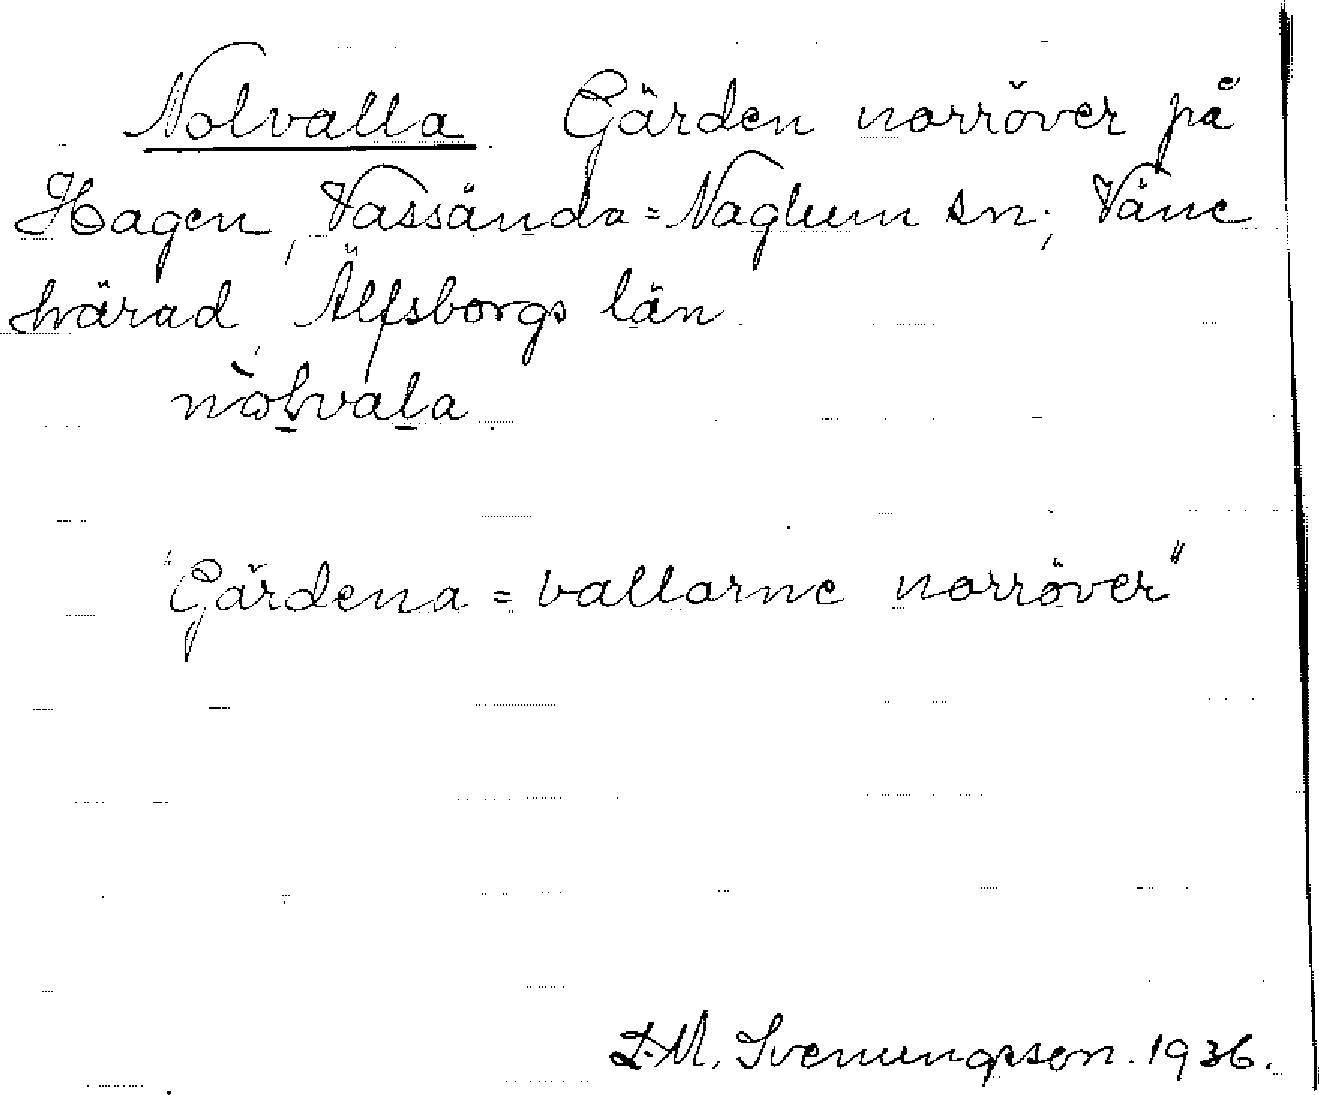 Nolvalla Gärden norröver på
Hagen, Vassända=Naglum sn; Väne
härad, Älfsborgs län
nòlvala.
"Gärdena = vallarne norröver"
D.M. Svenungsson. 1936.